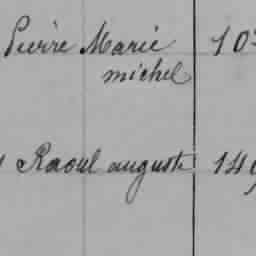 Pierre Marie 10
michel
Raoul auguste 149